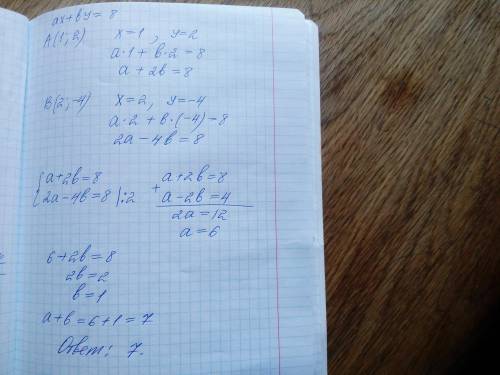 ax+by=8
A(1;2) x=1, y=2
a·1+b·2=8
a+2b=8
B(2;-4) x=2, y=-4
a·2+b·(-4)=8
2a-4b=8
{a+2b=8
2a-4b=8 |:2
a+2b=8
+ a-2b=4
2a=12
a=6
6+2b=8
2b=2
b=1
a+b=6+1=7
Ответ: 7.